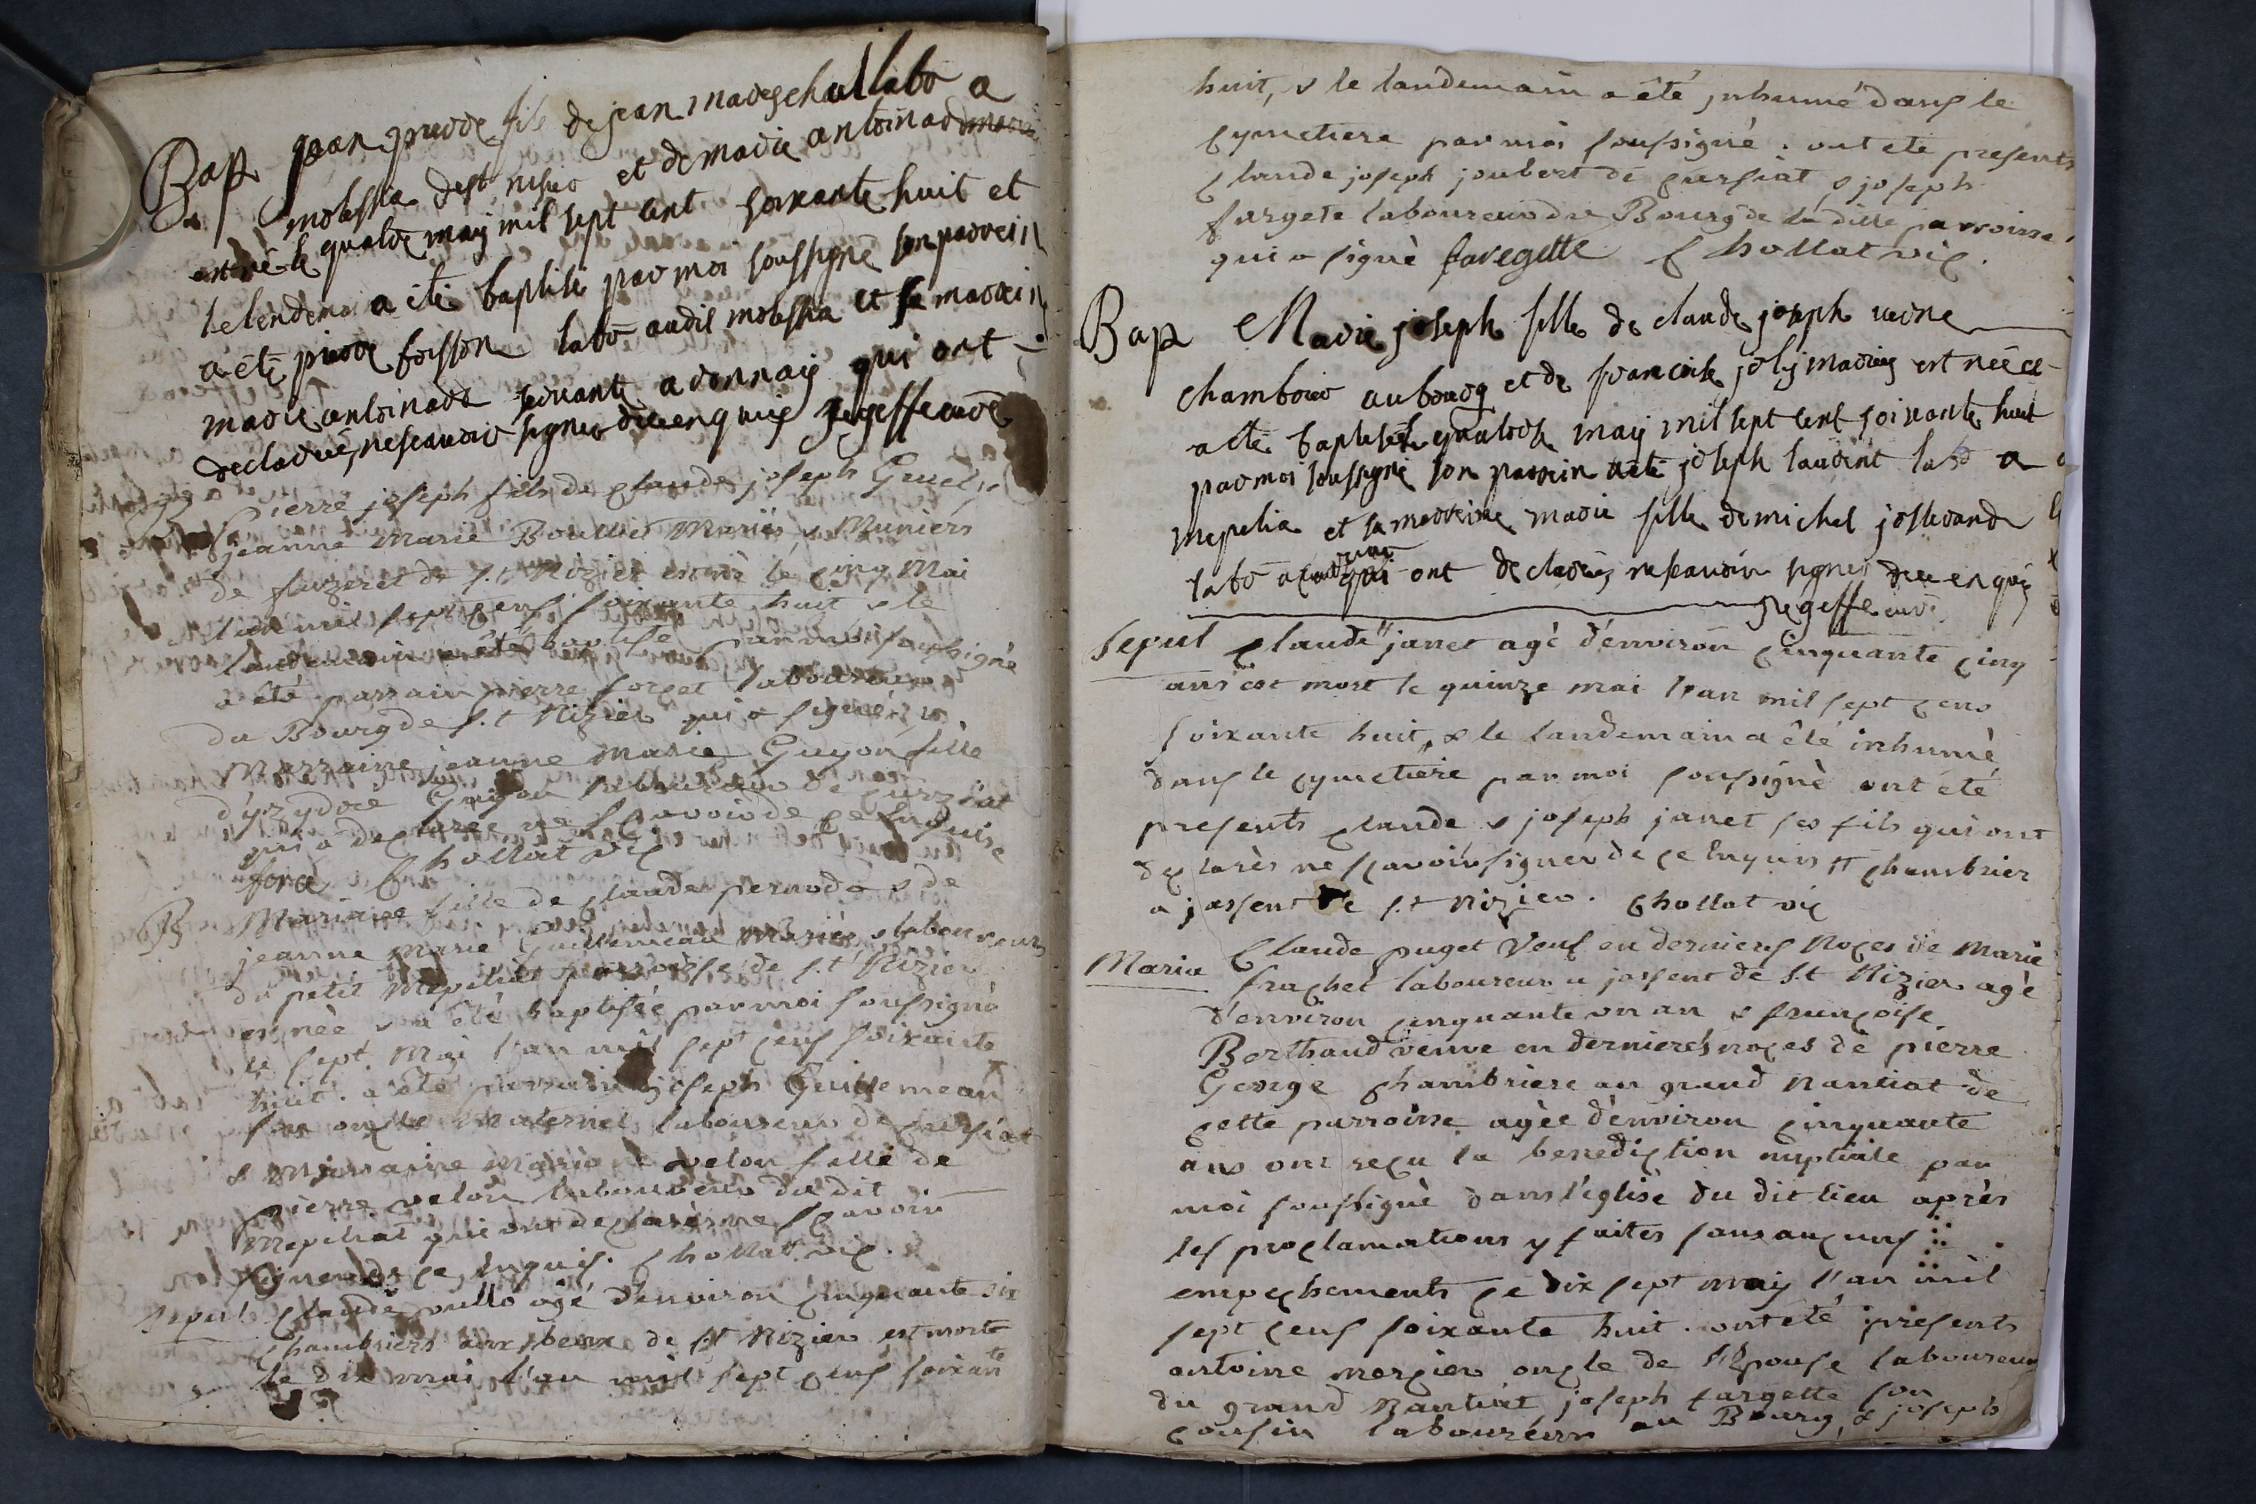 Bap jean pierre fils de jean mareschal labo a
molissia de st nisier et de marie antoinard
est né le quatre may mil sept cent soixante huit et
le lendemain a été baptisé par moi soussigné son parrein
a été pierre foisson labo audit molissia et sa marrein
marie antoinard servante a qui ont
declarés ne scavoir signer de ce enquis jegeffe curé
pierre joseph fils de claude joseph &
jeanne marie Boullier Mariés & Muniers
de de s.t Nizier est né le cinq Mai
l'an mil sept cens soixante huit & le
landemain a été baptisé par moi soussigné
a été parrain pierre forget laboureur
du Bourg de s.t Nizier qui a signé &
Marraine jeanne Marie Guyon fille
d'yzydore Guyon laboureur de curziat
qui a declarée ne scavoir de ce enquise
Chollat vic
B Mariane fille de claude pernodo & de
jeanne marie Guillemeau Mariés & laboureurs
du petit Mépiliat parroisse de s.t Nizier
est née & a été baptisée par moi soussigné
le sept Mai l'an mil sept cens soixante
huit. a été parrain joseph Guillemeau
son oncle Maternel laboureur de cursiat
& Marraine Marie velon fille de
pierre velon laboureur du dit
Mepeliat qui ont declarés ne scavoir
signer de ce enquis. Chollat vic.
Sepul claude agé d'environ cinquante six
chambrier aux de st Nizier est morte
le dix mai l'an mil sept cens soixante
huit, & le landemain a été jnhumé dans le
cymetiere par moi soussigné. ont été presents
claude joseph joubert de cursiat & joseph
fargete laboureur du Bourg de la ditte parroisse
qui a signé faregette Chollat vic.
Bap Marie joseph fille de claude joseph
chambrier au bourg et de francoise joly mariés est née et
a été baptisé le quatorse may mil sept cent soixante huit
par moi soussigné son parrein a été joseph laurent labo a
mepelia et sa marreine marie fille de michel josserand
labo qui ont declarés ne scavoir signer de ce enquis
jegeffe curé
Sepul claude janet agé d'environ cinquante cinq
ans est mort le quinze mai l'an mil sept cens
soixante huit, & le landemain a été inhumé
dans le cymetiere par moi soussigné ont été
presents claude & joseph janet ses fils qui ont
declarés ne scavoir signer de ce enquis chambrier
a jassent de s.t Nizier. Chollat vic
Maria Claude puget veuf en dernieres Noces de Marie
frachet laboureur a jassent de S.t Nizier agé
d'environ cinquante un an & francoise
Berthaud veuve en dernieres noces de pierre
George chambriere au grand Nantiat de
cette parroisse agée d'environ cinquante
ans ont reçu la benediction nuptiale par
moi soussigné dans l'eglise du dit lieu après
les proclamations y faites sans aucuns
empechements ce dix sept may l'an mil
sept cens soixante huit. ont été presents
antoine mercier oncle de l'Epouse laboureur
du grand Nantiat joseph fargette son
cousin laboureur au Bourg, & joseph